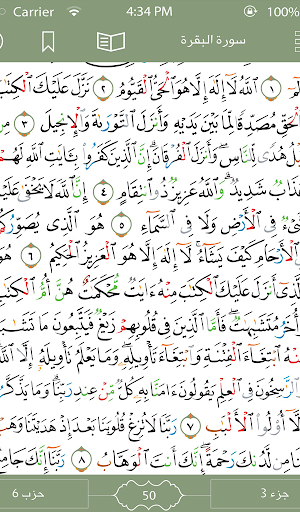 Carrier 4:34 PM 100%
سورة البقرة
١ ٱللَّهُ لَآ إِلَٰهَ إِلَّا هُوَ ٱلْحَىُّ ٱلْقَيُّومُ ٢ نَزَّلَ عَلَيْكَ ٱلْكِتَٰبَ
ٱلْحَقِّ مُصَدِّقًا لِّمَا بَيْنَ يَدَيْهِ وَأَنزَلَ ٱلتَّوْرَىٰةَ وَٱلْإِنجِيلَ ٣
هُدًى لِّلنَّاسِ وَأَنزَلَ ٱلْفُرْقَانَ إِنَّ ٱلَّذِينَ كَفَرُوا۟ بِـَٔايَٰتِ ٱللَّهِ
شَدِيدٌ وَٱللَّهُ عَزِيزٌ ذُو ٱنتِقَامٍ ٤ إِنَّ ٱللَّهَ لَا يَخْفَىٰ عَلَيْهِ
فِى ٱلْأَرْضِ وَلَا فِى ٱلسَّمَآءِ ٥ هُوَ ٱلَّذِى يُصَوِّرُكُمْ
ٱلْأَرْحَامِ كَيْفَ يَشَآءُ لَآ إِلَٰهَ إِلَّا هُوَ ٱلْعَزِيزُ ٱلْحَكِيمُ ٦ هُوَ
أَنزَلَ عَلَيْكَ ٱلْكِتَٰبَ مِنْهُ ءَايَٰتٌ مُّحْكَمَٰتٌ هُنَّ أُمُّ
مُتَشَٰبِهَٰتٌ فَأَمَّا ٱلَّذِينَ فِى قُلُوبِهِمْ زَيْغٌ فَيَتَّبِعُونَ مَا
ٱبْتِغَآءَ ٱلْفِتْنَةِ وَٱبْتِغَآءَ تَأْوِيلِهِ وَمَا يَعْلَمُ تَأْوِيلَهُۥٓ إِلَّا ٱللَّهُ
ٱلرَّٰسِخُونَ فِى ٱلْعِلْمِ يَقُولُونَ ءَامَنَّا بِهِۦ كُلٌّ مِّنْ عِندِ رَبِّنَا وَمَا يَذَّكَّرُ
أُو۟لُوا۟ ٱلْأَلْبَٰبِ ٧ رَبَّنَا لَا تُزِغْ قُلُوبَنَا بَعْدَ إِذْ هَدَيْتَنَا
مِن لَّدُنكَ رَحْمَةً إِنَّكَ أَنتَ ٱلْوَهَّابُ ٨ رَبَّنَآ إِنَّكَ جَامِعُ
جزء 3 50 حزب 6